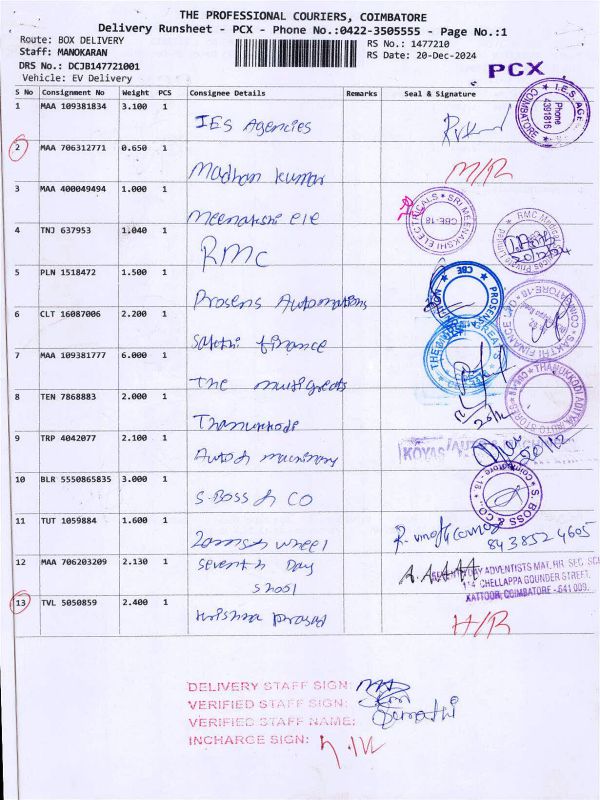 THE PROFESSIONAL COURIERS, COIMBATORE
Delivery Runsheet - PCX - Phone No.:0422-3505555 - Page No.:1
Route: BOX DELIVERY
Staff: MANOKARAN
DRS No.: DCJB147721001
Vehicle: EV Delivery
RS No.: 1477210
RS Date: 20-Dec-2024
PCX
S No Consignment No Weight PCS Consignee Details Remarks Seal & Signature
1 MAA 109381834 3.100 1 IES Agencies
I.E.S. AGE
Phone
4391816
COIMBATORE
2 MAA 706312771 0.650 1 Madhan kumar M/R
3 MAA 400049494 1.000 1 Meenakshi ele
SRI MEENAKSHI ELECTRICALS
CBE-18
4 TNJ 637953 1.040 1 RMC
RMC Medical Private Limited
5 PLN 1518472 1.500 1 Prosens Automations
PROSENS
CBE
6 CLT 16087006 2.200 1 Sakthi finance
SAKTHI FINANCE LTD
7 MAA 109381777 6.000 1 The multigreats
8 TEN 7868883 2.000 1 Thanukkode
THANUKKODI ADITYA AUTO STORES
20/12
9 TRP 4042077 2.100 1 Auto & machinary
20/12
10 BLR 5550865835 3.000 1 S.Boss & CO
S. BOSS & CO.
Coimbatore - 18
11 TUT 1059884 1.600 1 wheel
843852 4605
12 MAA 706203209 2.130 1 Seventh Day
Shool
DAY ADVENTISTS MAT. HR. SEC. SC
114 CHELLAPPA GOUNDER STREET,
KATTOOR, COIMBATORE - 641 009.
13 TVL 5050859 2.400 1 Krishna prasad H/R
DELIVERY STAFF SIGN:
VERIFIED STAFF SIGN:
VERIFIED STAFF NAME: Sumathi
INCHARGE SIGN: